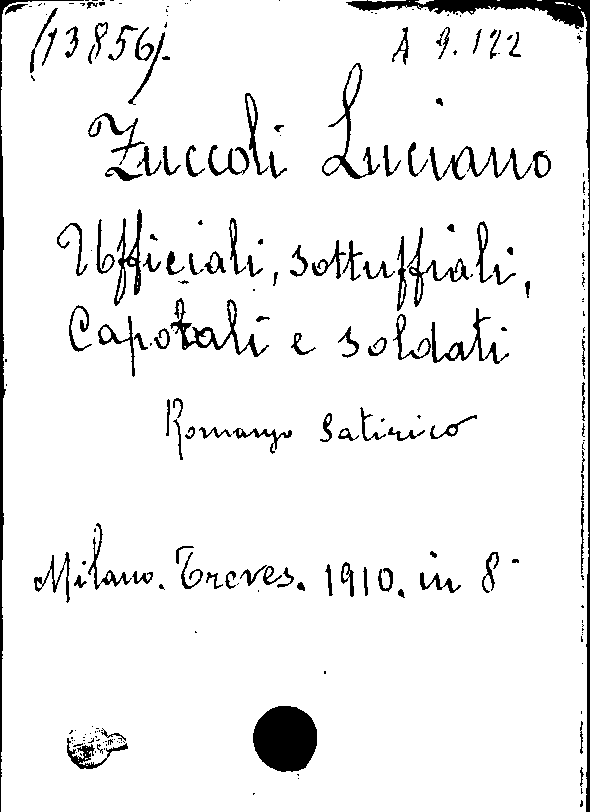 (13856).
A 9.122
Zuccoli Luciano
Ufficiali, sottuffiali,
Caporali e soldati
Romanzo satirico
Milano. Treves. 1910. in 8°